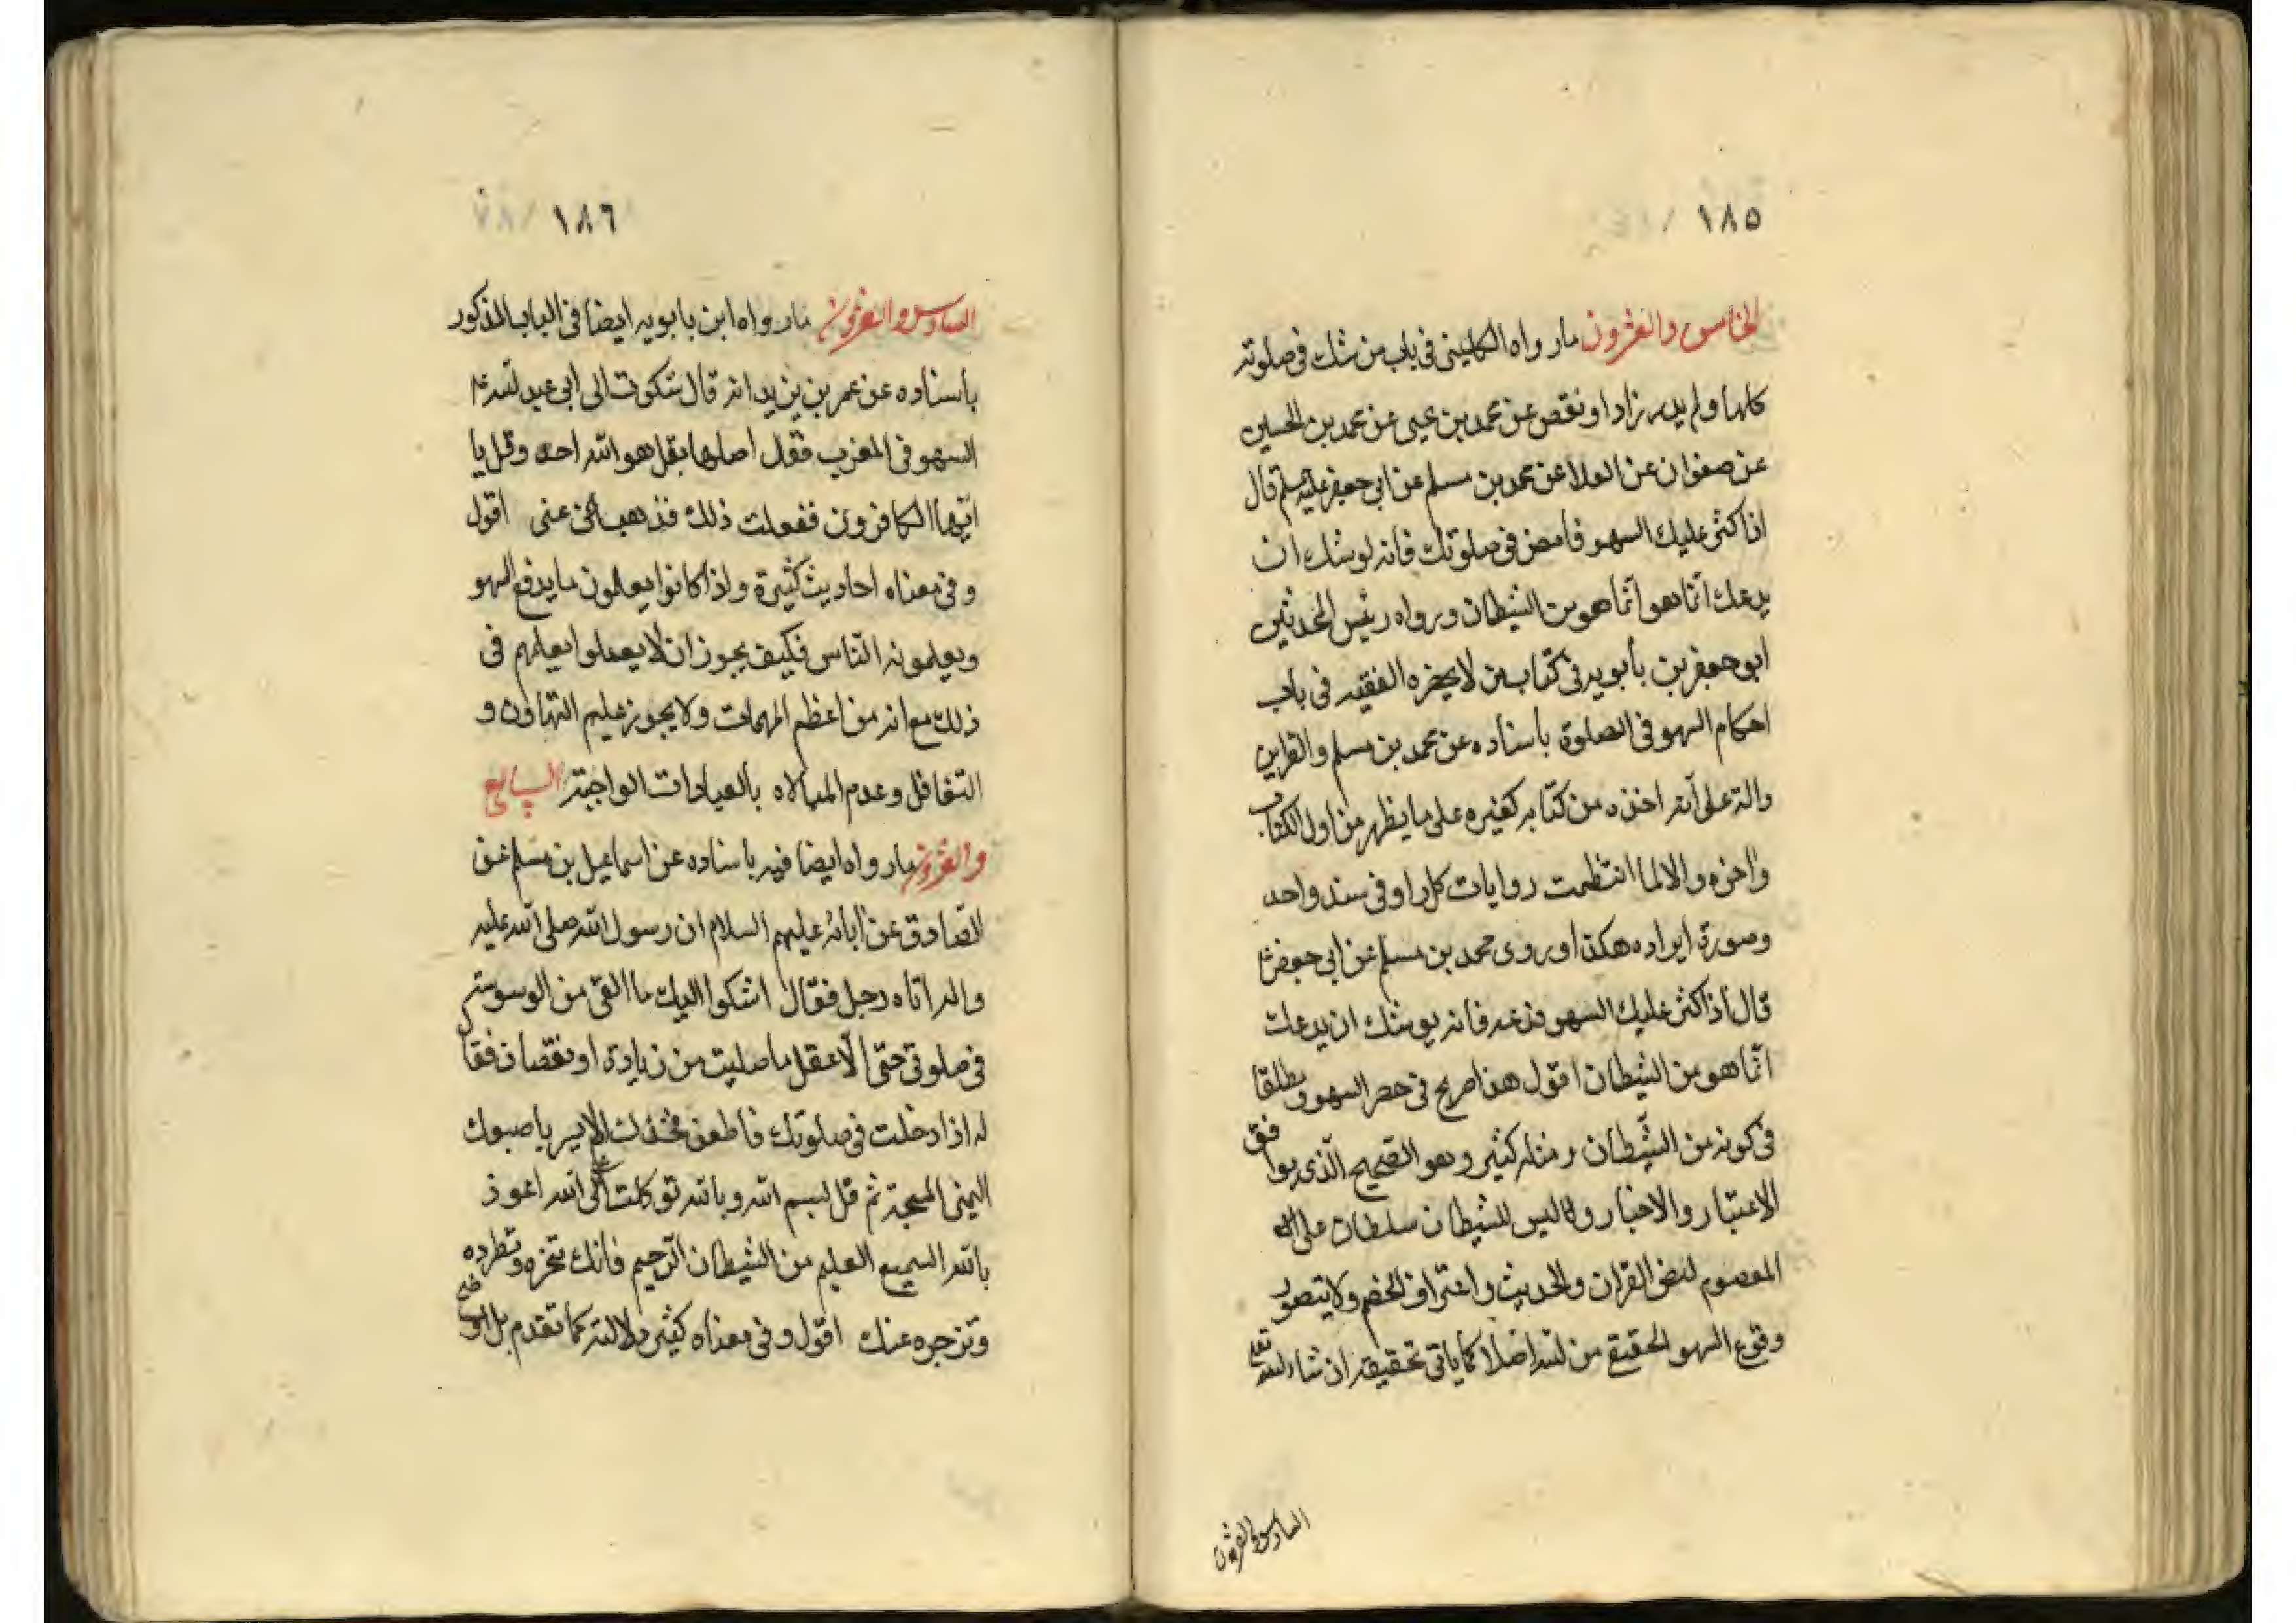 ١٨٥
الخامس والعشرون ما رواه الكلينى فى باب من شك فى صلوته
كلها ولم يدر زاد او نقص عن محمد بن يحيى عن محمد بن الحسين
عن صفوان عن العلا عن محمد بن مسلم عن ابى جعفر عليه السلم قال
اذا كثر عليك السهو فامض فى صلوتك فانه يوشك ان
يدعك انما هو انما هو من الشيطان ورواه رئيس المحدثين
ابو جعفر بن بابويه فى كتاب من لا يحضره الفقيه فى باب
احكام السهو فى الصلوة باسناده عن محمد بن مسلم والقراين
دالة على انه اخذه من كتابه كغيره على ما يظهر من اول الكتاب
واخره والا لما انتظمت روايات كل راو فى سند واحد
وصورة ايراده هكذا وروى محمد بن مسلم عن ابى جعفر ع
قال اذا كثر عليك السهو فدعه فانه يوشك ان يدعك
انما هو من الشيطان اقول هذا صريح فى حصر السهو مطلقا
فى كونه من الشيطان ومثله كثير وهو الصحيح الذى يوافق
الاعتبار والاخبار ولما ليس للشيطان سلطان على
المعصوم لنص القران والحديث واعتراف الخصم ولا يتصور
وقوع السهو الحقيقى من الله اصلا كما ياتى تحقيقه ان شاء الله تعالى
السادس والعشرون
١٨٦
السادس والعشرون ما رواه ابن بابويه ايضا فى الباب المذكور
باسناده عن عمر بن يزيد انه قال شكوت الى ابى عبد الله ع
السهو فى المغرب فقال صلها بقل هو الله احد وقل يا
ايها الكافرون ففعلت ذلك فذهب عنى اقول
وفى معناه احاديث كثيرة واذا كانوا يعلمون ما يدفع السهو
ويعلمونه الناس فكيف يجوز ان لا يعملوا بعلمهم فى
ذلك مع انه من اعظم المهمات ولا يجوز عليهم التهاون و
التغافل وعدم المبالاه بالعبادات الواجبة السابع
والعشرون ما رواه ايضا فيه باسناده عن اسماعيل بن مسلم عن
الصادق عن ابائه عليهم السلام ان رسول الله صلى الله عليه
واله اتاه رجل فقال اشكوا اليك ما القى من الوسوسة
فى صلوتى حتى لا اعقل ما صليت من زيادة او نقصان فقال
له اذا دخلت فى صلوتك فاطعن فخذك الايسر باصبعك
اليمنى المسبحة ثم قل بسم الله وبالله توكلت على الله اعوذ
بالله السميع العليم من الشيطان الرجيم فانك تنحره وتطرده
وتزجره عنك اقول وفى معناه كثير دلالته كما تقدم بل اوضح